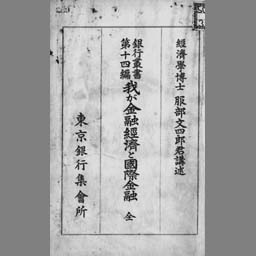 經濟學博士 服部文四郎君講述
銀行叢書
第十四編
我が金融經濟と國際金融 全
東京銀行集會所